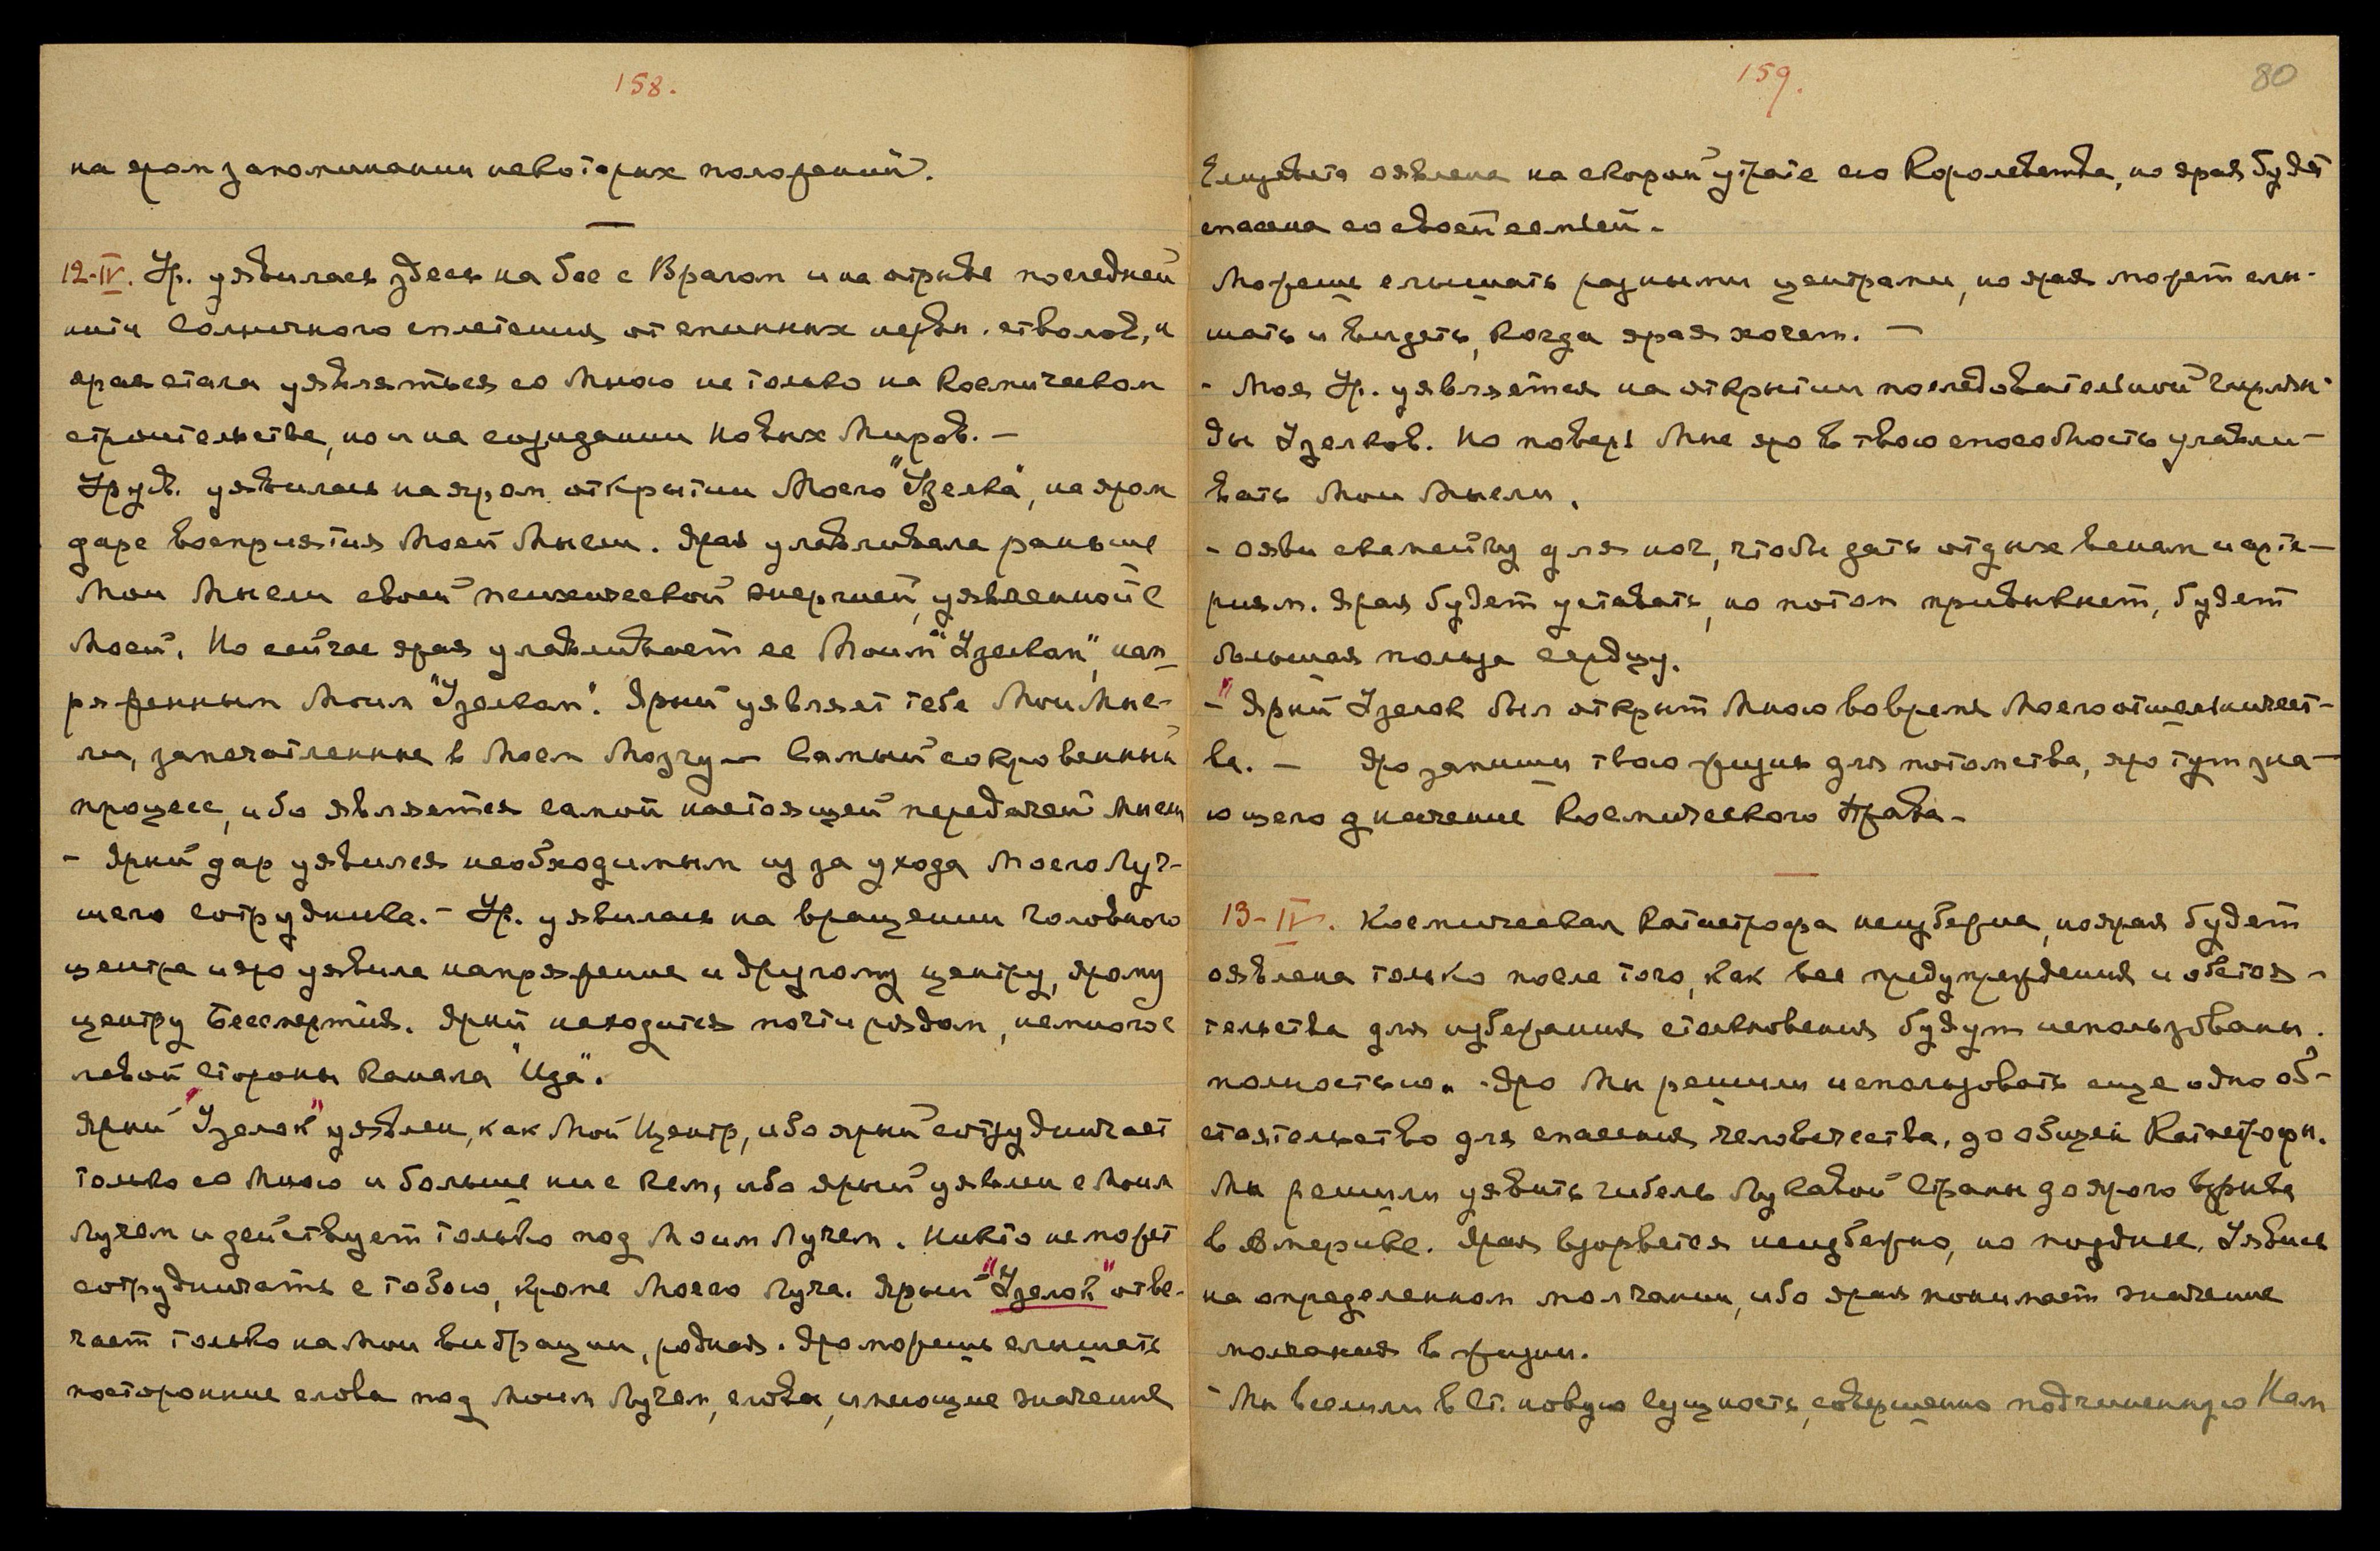 158.
на яром запоминании некоторых положений.
12-IV. Ур. уявилась здесь на бое с Врагом и на отрыве последней
нити Солнечного сплетения от спинных нервн. стволов, и
ярая стала уявляться со Мною не только на Космическом
строительстве, но и на созидании Новых Миров. –
Урув. уявилась на яром открытии Моего "Узелка", на яром
даре восприятия Моей Мысли. Ярая улавливала раньше
Мои Мысли своей психической энергией, уявленной с
Моей. Но сейчас ярая улавливает ее Моим "Узелком", нап-
ряженным Моим "Узелком". Ярый уявляет тебе Мои Мыс-
ли, запечатленные в Моем Мозгу – Самый сокровенный
процесс, ибо является самой настоящей передачей Мысли
– Ярый дар уявился необходимым из за ухода Моего Луч-
шего сотрудника. – Ур. уявилась на вращении головного
центра и яро уявила напряжение и другому центру, ярому
центру Бессмертия. Ярый находится почти рядом, немного с
левой стороны канала "Ида".
Ярый "Узелок" уявлен, как Мой Центр, ибо ярый сотрудничает
только со Мною и больше ни с кем, ибо ярый уявлен с Моим
Лучем и действует только под Моим Лучем. Никто не может
сотрудничать с тобою, кроме Моего Луча. Ярый "Узелок" отве-
чает только на Мои вибрации, родная. Яро можешь слышать
посторонние слова под Моим Лучем, слова, имеющие значение
159.
80
Елизавета оявлена на скорой утрате его Королевства, но ярая будет
спасена со своей семьей.
Можешь слышать разными центрами, но ярая может слы-
шать и видеть, когда ярая хочет. –
– Моя Ур. уявляется на открытии последовательной гирлян-
ды Узелков. Но поверь Мне яро в твою способность улавли-
вать Мои Мысли.
– Ояви скамейку для ног, чтобы дать отдых венам и арте-
риям. Ярая будет уставать, но потом привыкнет, будет
большая польза сердцу.
– "Ярый Узелок был открыт Мною во время Моего отшельничест-
ва. – Яро запиши твою жизнь для потомства, яро тут зна-
ющего значение Космического Права –
13-IV. Космическая Катастрофа неизбежна, но ярая будет
оявлена только после того, как все предупреждения и обстоя-
тельства для избежания столкновения будут использованы.
полностью. – Яро Мы решили использовать еще одно об-
стоятельство для спасения человечества, до общей Катастрофы.
Мы решили уявить гибель Лукавой Страны до ярого взрыва
в Америке. Ярая взорвется неизбежно, но позднее. Уявись
на определенном молчании, ибо ярая понимает значение
молчания в жизни.
– Мы вселили в Ст. новую сущность, совершенно подчиненную Нам